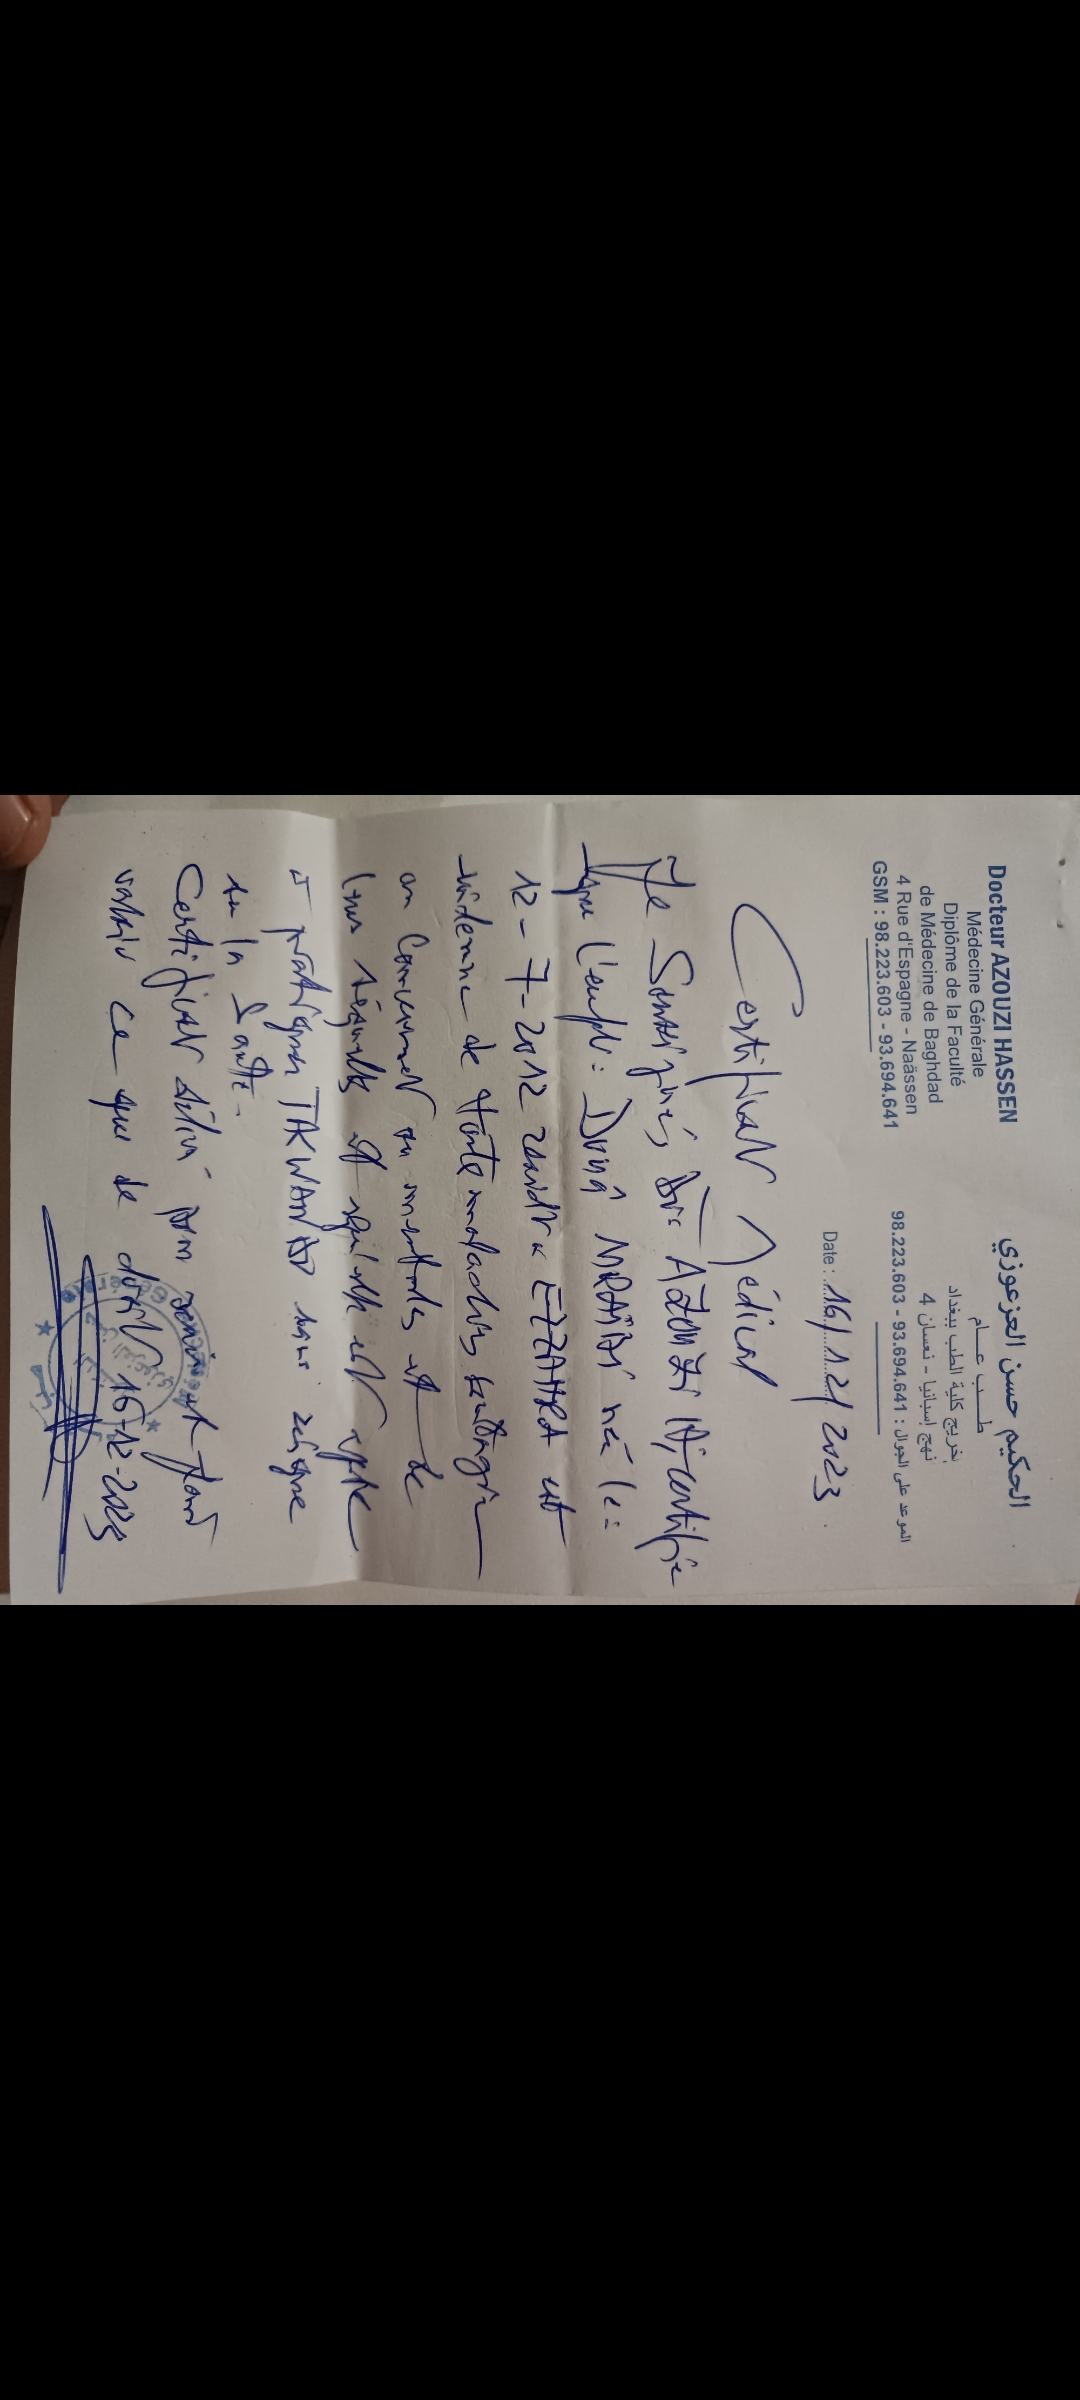 Docteur AZOUZI HASSEN
Médecine Générale
Diplôme de la Faculté
de Médecine de Baghdad
4 Rue d'Espagne - Naässen
GSM : 98.223.603 - 93.694.641
الحكيم حسن العزعوزي
طب عام
خريج كلية الطب ببغداد
4 نهج إسبانيا - نعسان
الموعد على الجوال : 98.223.603 - 93.694.641
Date : 16/12/2023
Certificat Médical
Je Soussigné, Dr: AZOUZI H, certifie
que l'enfant: MRAÏBI née le:
12-7-2012 EZZAHRA est
indemne de toute maladies
et de
et
pratiquer TAKWANDO sans risque
sur la Santé.
Certificat délivré pour servir et faire
valoir ce que de droit 16-12-2023